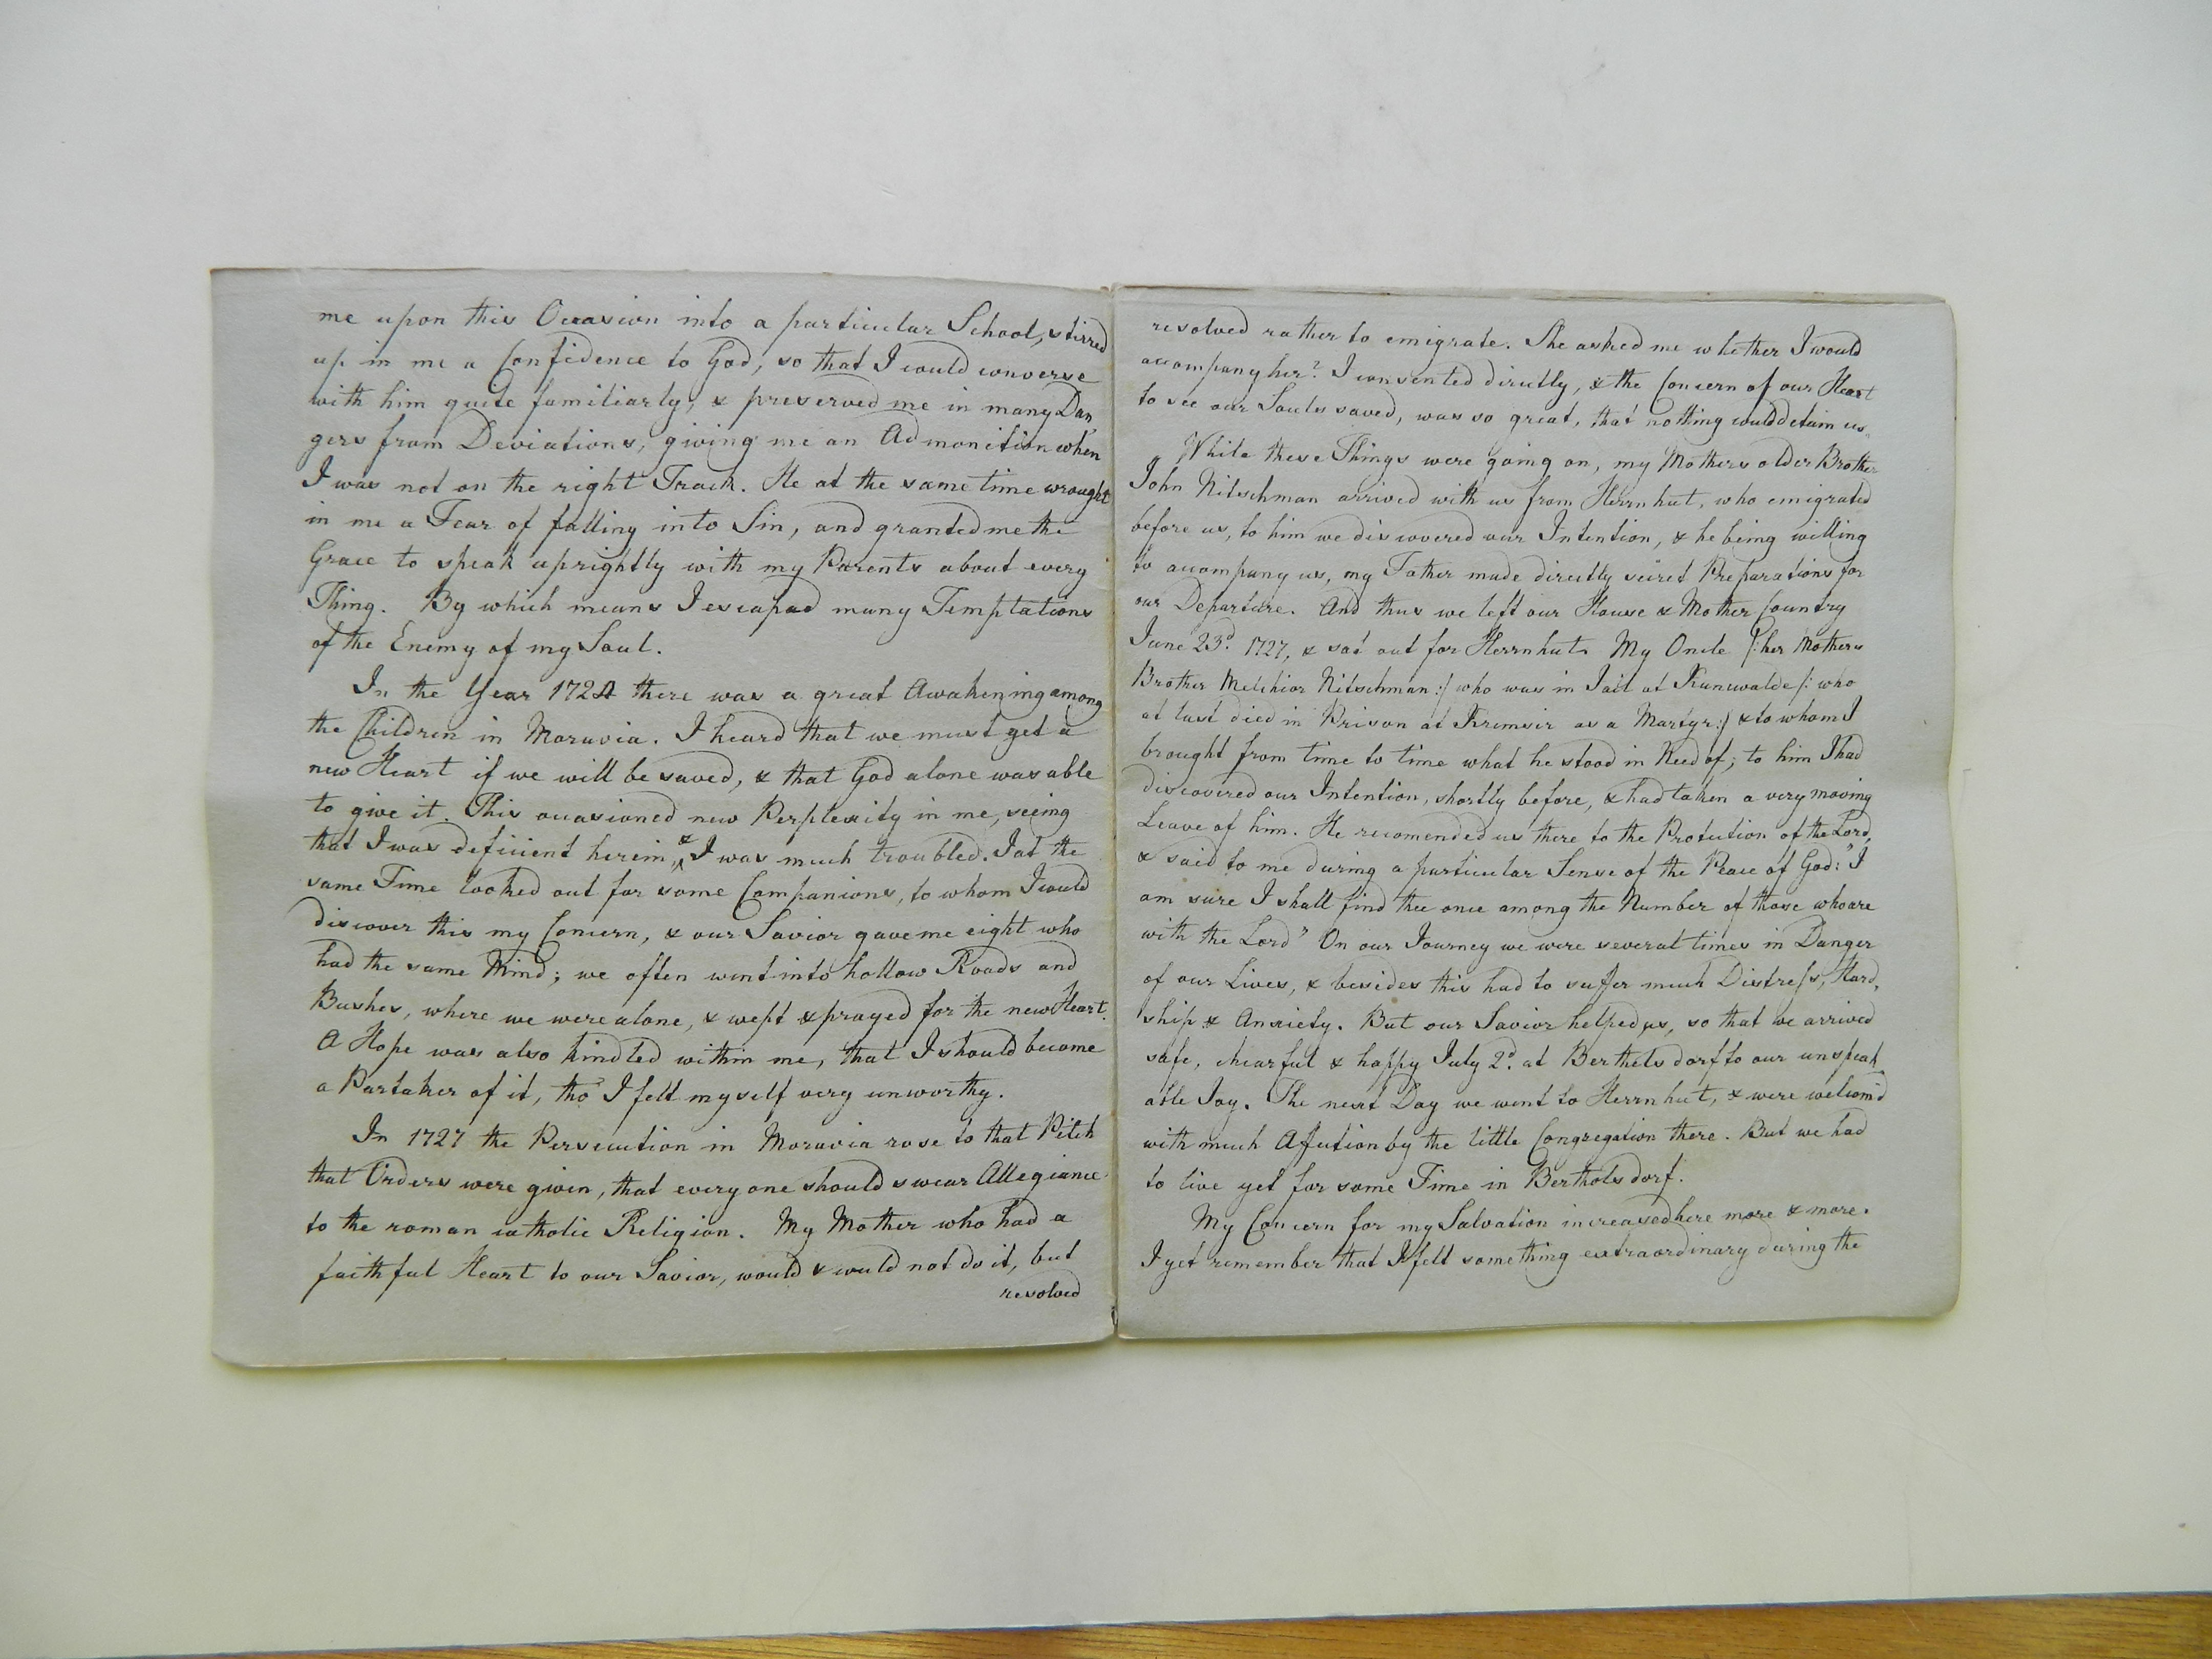 me upon this Occasion into a particular School, stirred
up in me a Confidence to God, so that I could converse
with him quite familiarly, & preserved me in many Dan„
gers from Deviations, giving me an Admonition when
I was not on the right Track. He at the same time wrought
in me a Fear of falling into Sin, and granted me the
Grace to speak uprightly with my Parents about every
Thing. By which means I escaped many Temptations
of the Enemy of my Soul.
In the Year 1724 there was a great Awakening among
the Children in Moravia. I heard that we must get a
new Heart if we will be saved, & that God alone was able
to give it. This occasioned new Perplexity in me, seeing
that I was deficient herein, & I was much troubled. I at the
same Time looked out for some Companions, to whom I could
discover this my Concern, & our Savior gave me eight who
had the same Mind; we often went into hollow Roads and
Bushes, where we were alone, & wept & prayed for the new Heart.
A Hope was also kindled within me, that I should become
a Partaker of it, tho' I felt myself very unworthy.
In 1727 the Persecution in Moravia rose to that Pitch
that Orders were given, that every one should swear Allegiance
to the roman catholic Religion. My Mother who had a
faithful Heart to our Savior, would & could not do it, but
resolved
resolved rather to emigrate. She asked me whether I would
accompany her? I consented directly, & the Concern of our Heart
to see our Souls saved, was so great, that nothing could detain us.
While these Things were going on, my Mothers older Brother
John Nitschman arrived with us from Herrnhut, who emigrated
before us, to him we discovered our Intention, & he being willing
to accompany us, my Father made directly secret Preparations for
our Departure. And thus we left our House & Mother Country
June 23d. 1727, & sat out for Herrnhut. My Oncle /: her Mothers
Brother Melchior Nitschman :/ who was in Jail at Kunewalde /: who
at last died in Prison at Kremsir as a Martyr :/ & to whom I
brought from time to time what he stood in Need of; to him I had
discovered our Intention, shortly before, & had taken a very moving
Leave of him. He recomended us there to the Protection of the Lord,
& said to me during a particular Sense of the Peace of God: "I
am sure I shall find thee once among the Number of those who are
with the Lord" On our Journey we were several times in Danger
of our Lives, & besides this had to suffer much Distress, Hard„
ship & Anxiety. But our Savior helped us, so that we arrived
safe, chearful & happy July 2d. at Berthelsdorf to our unspeak„
able Joy. The next Day we went to Herrnhut, & were welcom'd
with much Affection by the little Congregation there. But we had
to live yet for some Time in Bertholsdorf.
My Concern for my Salvation increased here more & more.
I yet remember that I felt something extraordinary during the